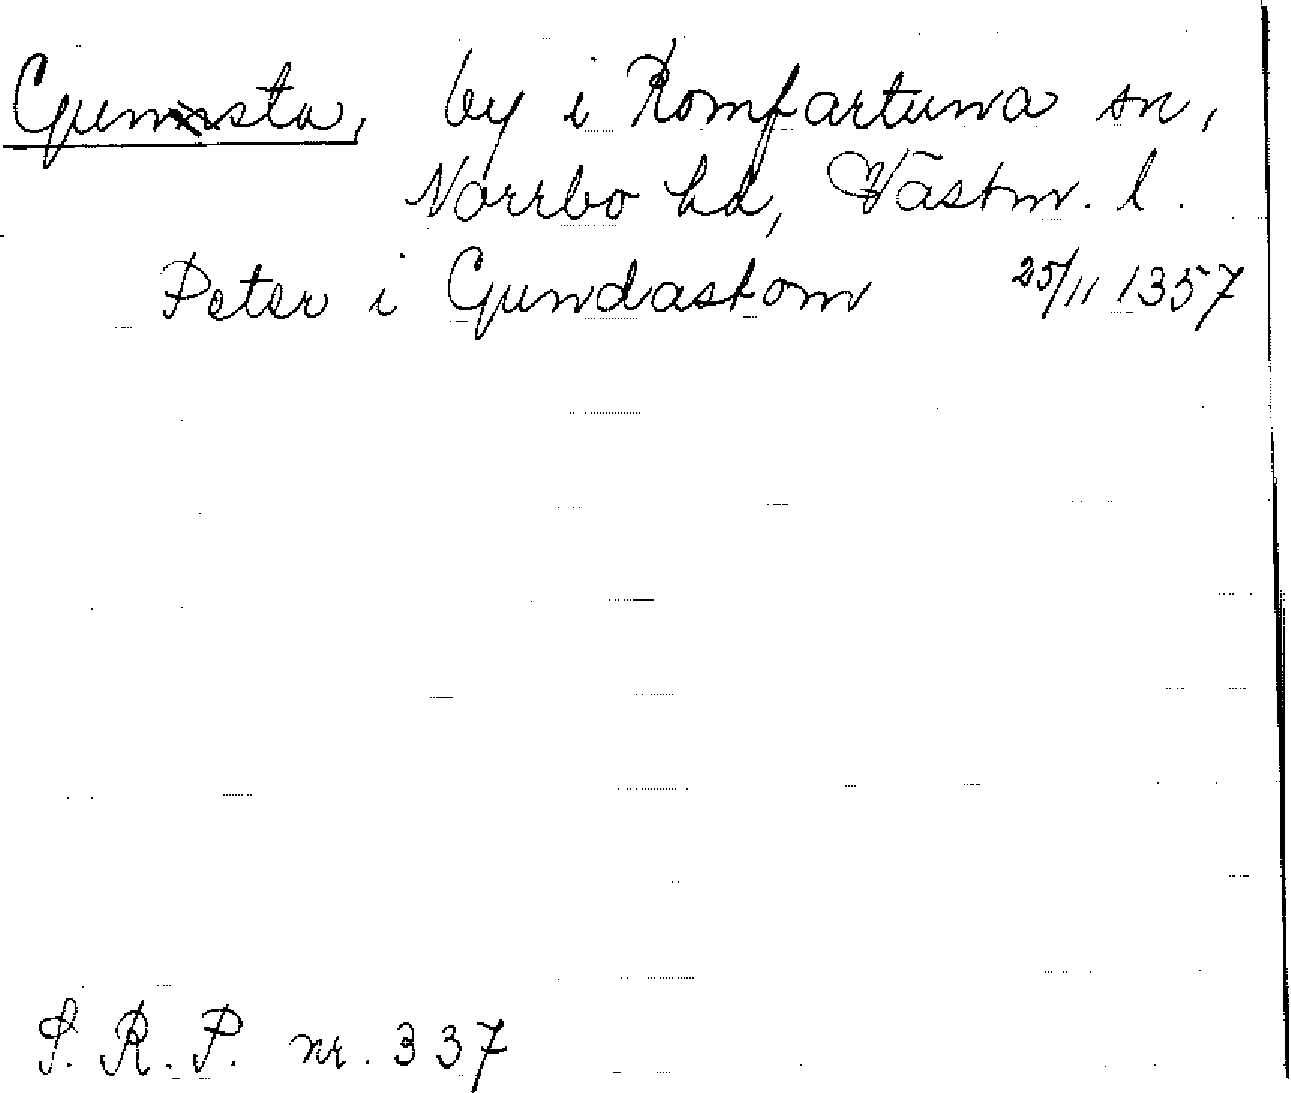 Gunsta, by i Romfartuna sn,
Norrbo hd, Västm. l.
Peter i Gundastom 25/11 1357
S. R. P. nr. 337